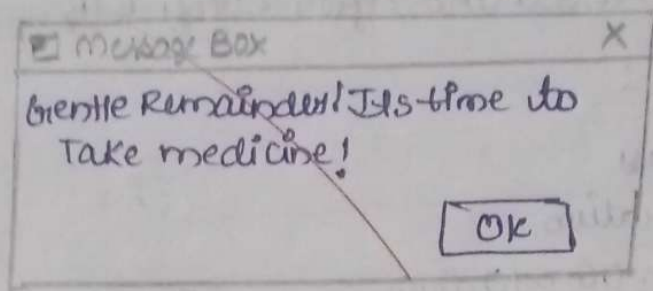 Message Box X
Gentle Remainder! It's time to
Take medicine!
OK